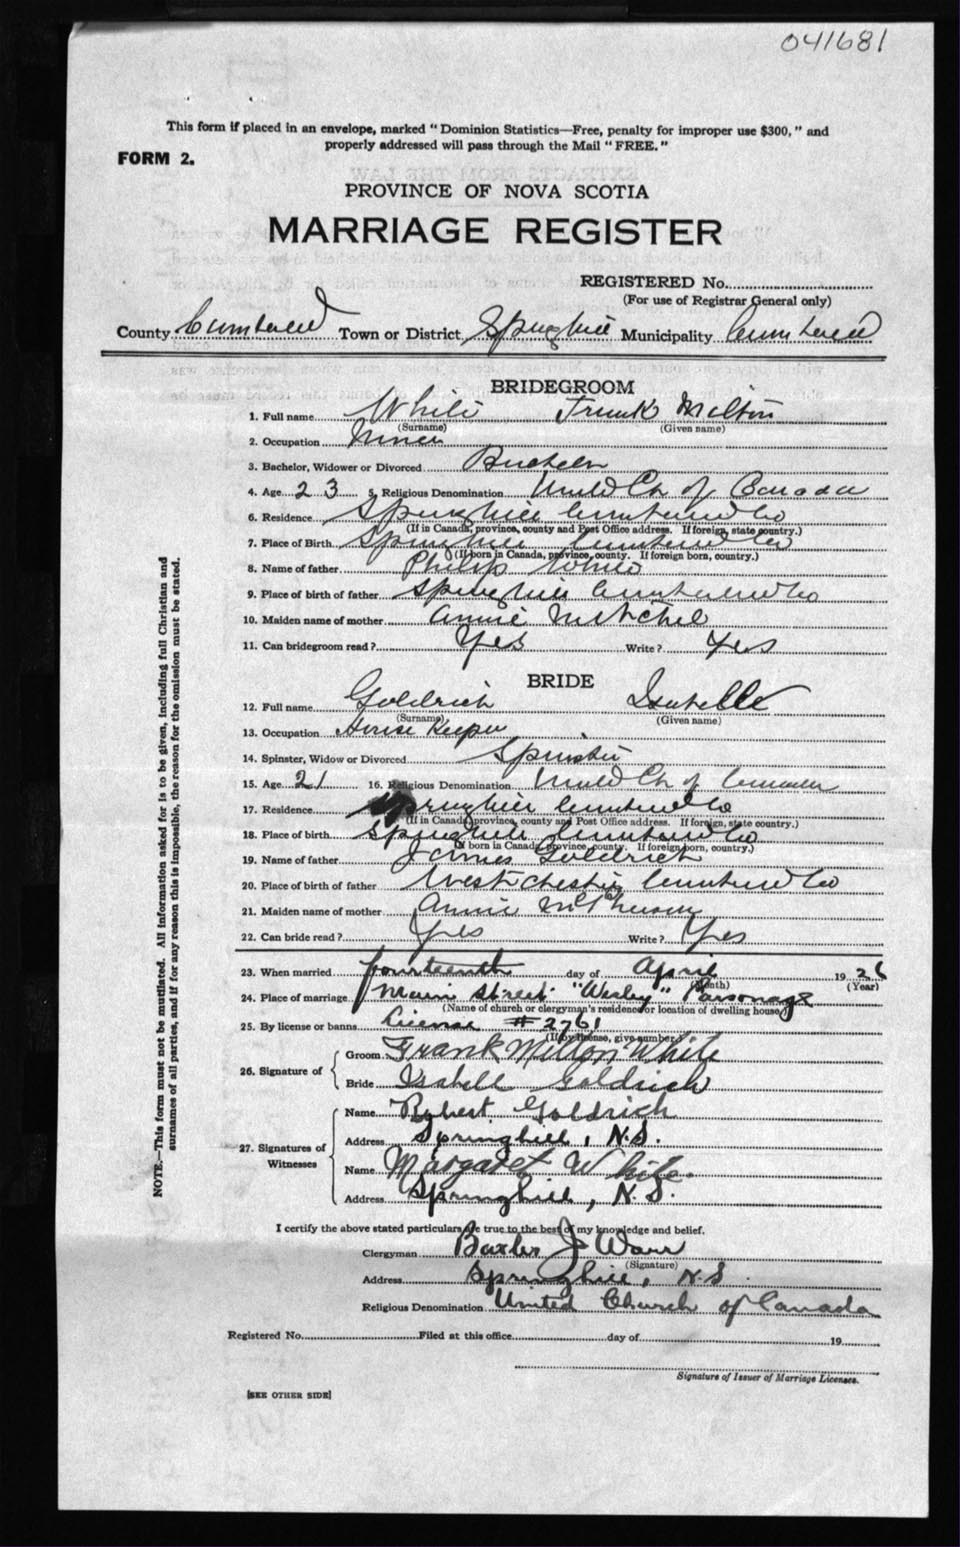 041681
This form if placed in an envelope, marked "Dominion Statistics—Free, penalty for improper use $300," and
properly addressed will pass through the Mail "FREE."
FORM 2.
PROVINCE OF NOVA SCOTIA
MARRIAGE REGISTER
REGISTERED No.
(For use of Registrar General only)
County Cumberland Town or District Springhill Municipality Cumberland
BRIDEGROOM
1. Full name White Frank Milton
(Surname) (Given name)
2. Occupation Miner
3. Bachelor, Widower or Divorced Bachelor
4. Age 23 5. Religious Denomination United Ch of Canada
6. Residence Springhill Cumberland Co
(If in Canada, province, county and Post Office address. If foreign, state country.)
7. Place of Birth Springhill Cumberland Co
(If born in Canada, province, county. If foreign born, country.)
8. Name of father Philip White
9. Place of birth of father Springhill Cumberland Co
10. Maiden name of mother Annie Mitchel
11. Can bridegroom read? Yes Write? Yes
BRIDE
12. Full name Goldrich Isabelle
(Surname) (Given name)
13. Occupation House Keeper
14. Spinster, Widow or Divorced Spinster
15. Age 21 16. Religious Denomination United Ch of Canada
17. Residence Springhill Cumberland Co
(If in Canada, province, county and Post Office address. If foreign, state country.)
18. Place of birth Springhill Cumberland Co
(If born in Canada, province, county. If foreign born, country.)
19. Name of father James Goldrich
20. Place of birth of father Westchester Cumberland Co
21. Maiden name of mother Annie McPherson
22. Can bride read? Yes Write? Yes
23. When married fourteenth day of April 1926
(Month) (Year)
24. Place of marriage Main Street "Wesley" Parsonage
(Name of church or clergyman's residence or location of dwelling house)
25. By license or banns License # 2761
(If by license, give number)
26. Signature of
Groom Frank Milton White
Bride Isabell Goldrich
27. Signatures of Witnesses
Name Robert Goldrich
Address Springhill, N.S.
Name Margaret White
Address Springhill, N.S.
I certify the above stated particulars are true to the best of my knowledge and belief.
Clergyman J
(Signature)
Address Springhill, N.S.
Religious Denomination United Church of Canada
Registered No. Filed at this office day of 19
Signature of Issuer of Marriage Licenses.
[SEE OTHER SIDE]
NOTE.—This form must not be mutilated. All information asked for is to be given, including full Christian and
surnames of all parties, and if for any reason this is impossible, the reason for the omission must be stated.